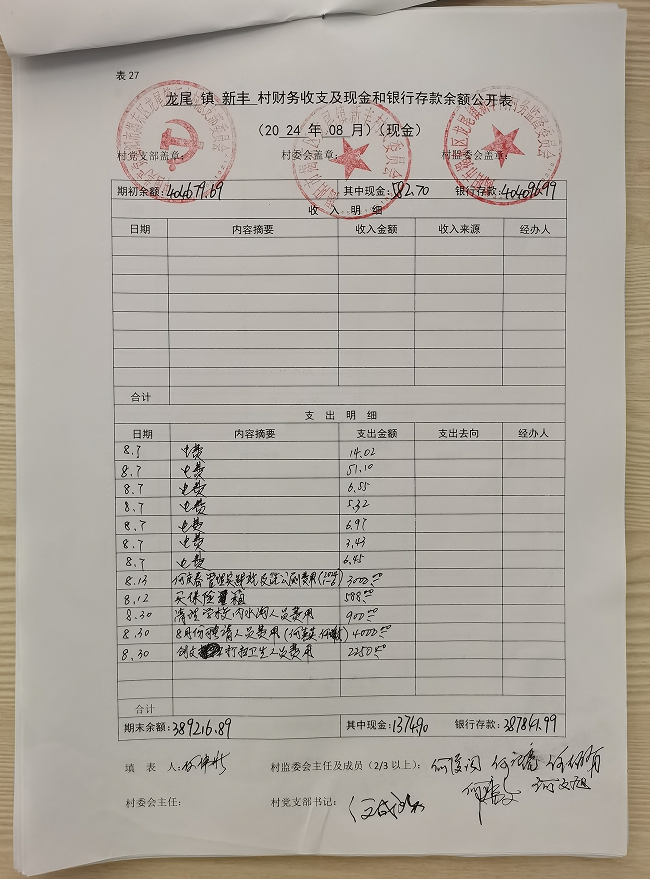 表 27
龙尾 镇 新丰 村财务收支及现金和银行存款余额公开表
（20 24 年 08 月）（现金）
村党支部盖章： 村委会盖章： 村监委会盖章：
期初余额：404679.69 其中现金：582.70 银行存款：404096.99
收 入 明 细
日期 内容摘要 收入金额 收入来源 经办人
合计
支 出 明 细
日期 内容摘要 支出金额 支出去向 经办人
8.7 电费 14.02
8.7 电费 51.10
8.7 电费 6.55
8.7 电费 5.32
8.7 电费 6.97
8.7 电费 3.43
8.7 电费 6.45
8.13 3000.00
8.12 买保险箱 588.00
8.30 清理学校内水沟人员费用 900.00
8.30 8月份聘请人员费用 4000.00
8.30 打扫卫生人员费用 2250.00
合计
期末余额：389216.89 其中现金：1374.90 银行存款：387841.99
填 表 人： 村监委会主任及成员（2/3 以上）：
村委会主任： 村党支部书记：